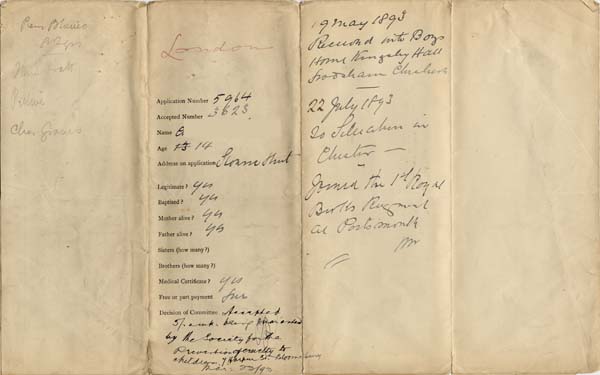 London
Application Number 5964
Accepted Number 3623
Name E
Age 14
Address on application
Legitimate? Yes
Baptised? Yes
Mother alive? Yes
Father alive? Yes
Sisters (how many?)
Brothers (how many?)
Medical Certificate? Yes
Free or part payment
Decision of Committee Accepted
5/- a wk. being guaranteed
by the Society for the
Prevention of cruelty to
children, 7 Harpur St. Bloomsbury
19 May 1893
Received into Boys
Home Kingsley Hall
Frodsham Cheshire
22 July 1893
To Situation in
Chester —
Joined the 1st Royal
Berks Regiment
at Portsmouth